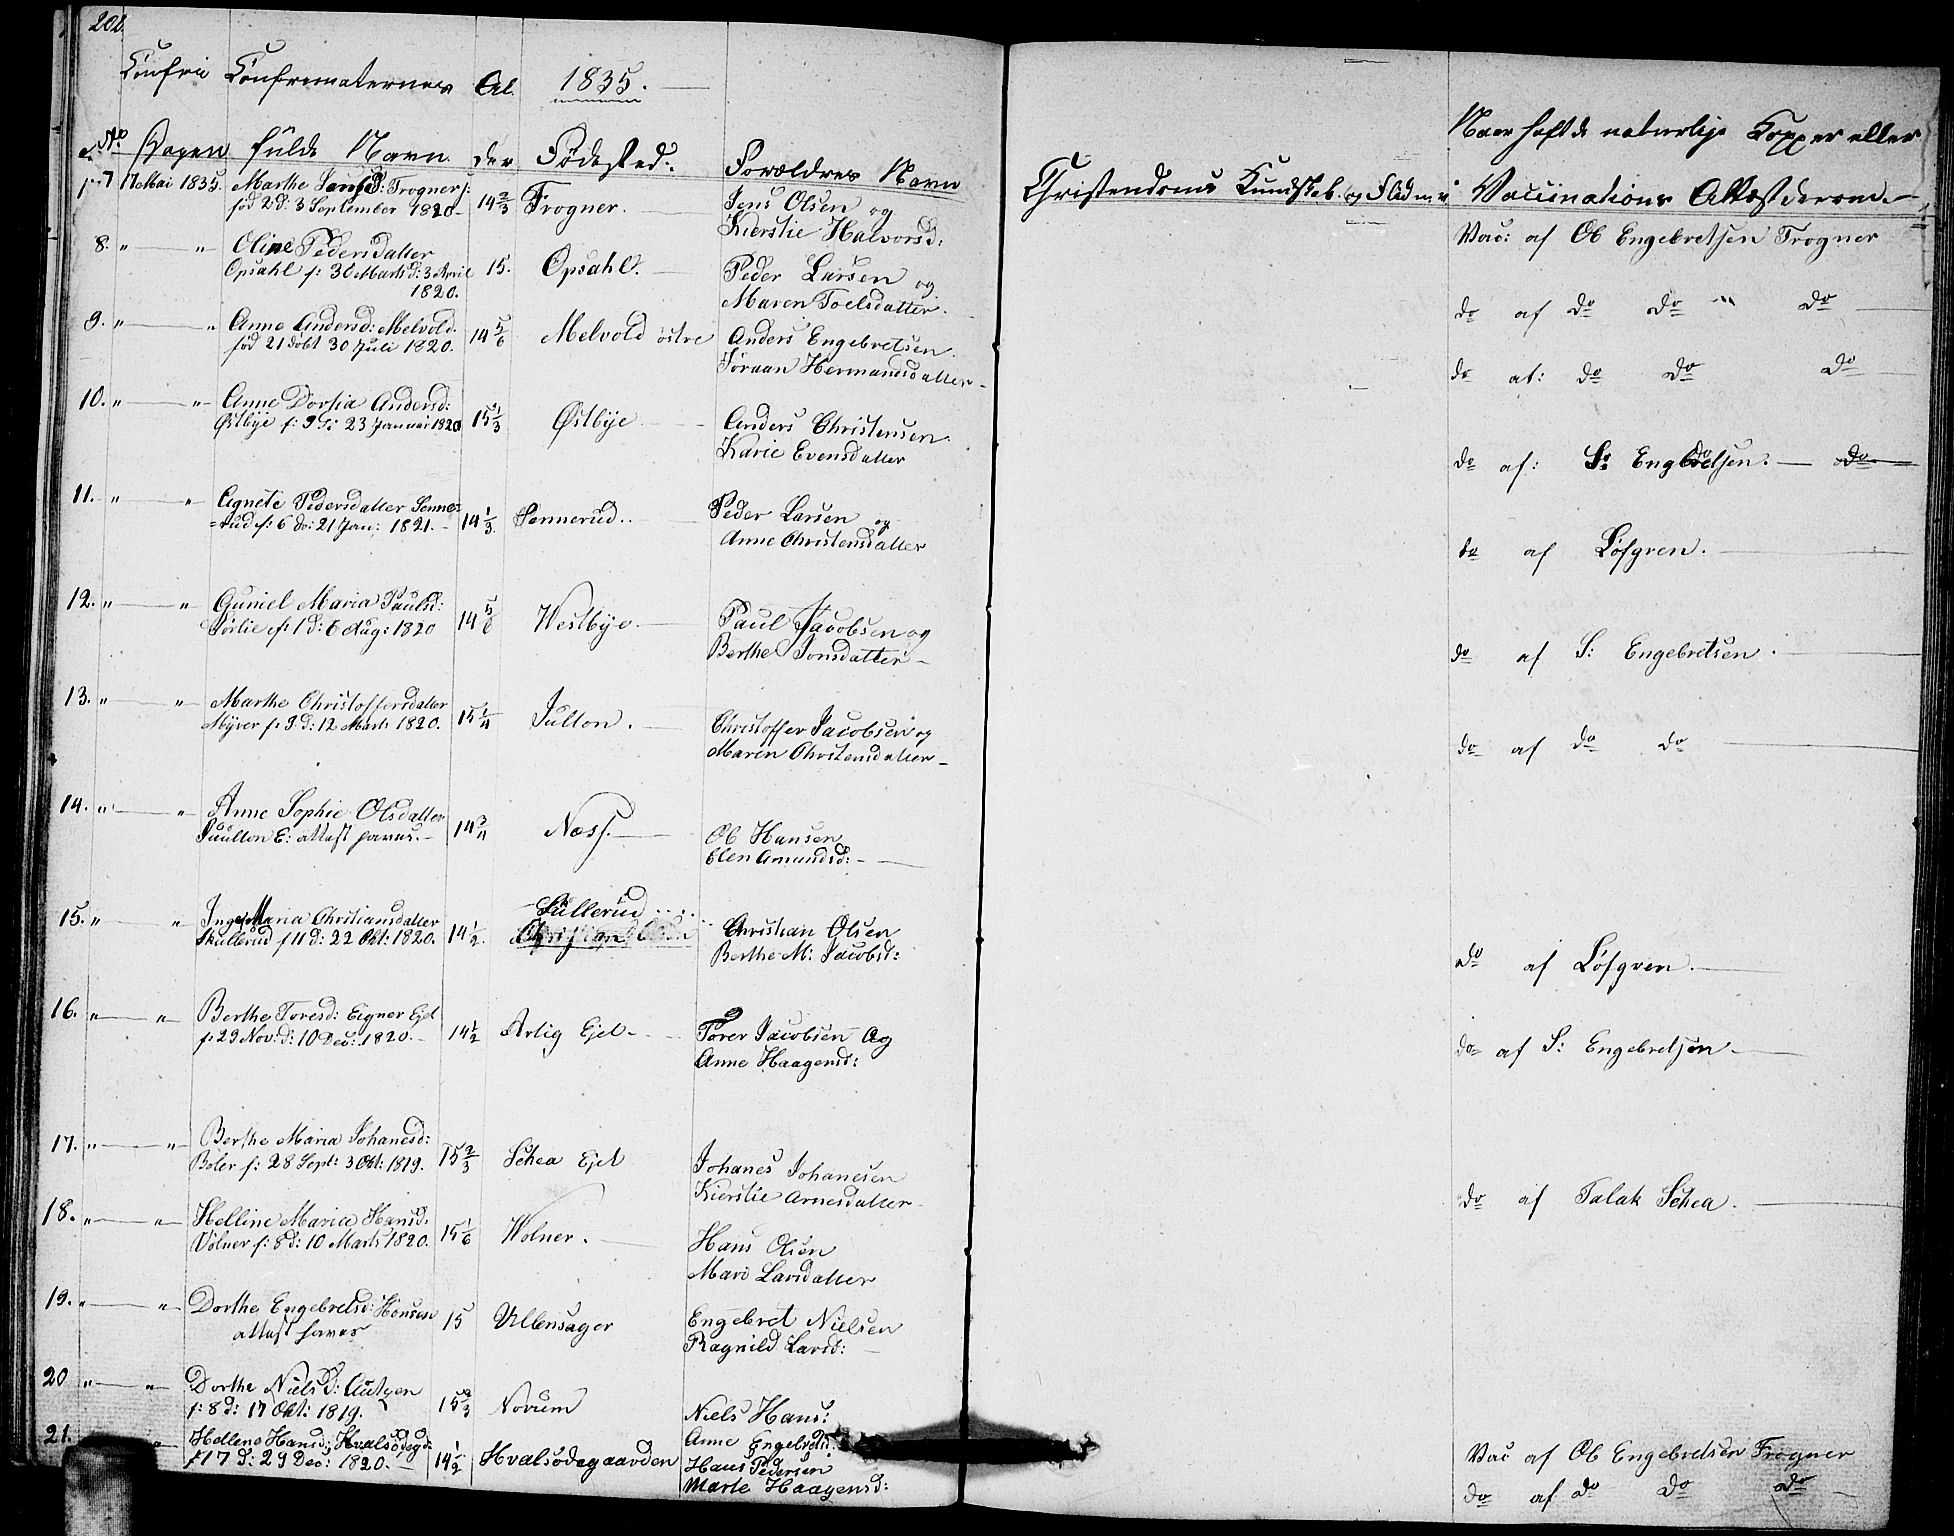 202
Confri Confrematernes Al 1835.
No Dagen fulde Navn der Fødested: Forældres Navn
Christendoms Kundskab og Flid
Naar hafde naturlige Kopper eller
Vaccinations Attest derom.
7 17 Mai 1835. Marthe Jensd: Frogner 14 2/3 Frogner. Jens Olsen og
fød 2 d: 3 September 1820 Kierstie Halvorsd:
Vac: af Ob Engebretsen Frogner
8. " " Oline Pedersdatter 15. Opsahl. Peder Larsen og
Opsahl f: 30 Marts d: 3 April 1820. Maren Toelsdatter.
do af do do " do
9. " " Anne Andersd: Melvold. 14 5/6 Melvold østre Anders Engebretsen
fød 21 døbt 30 Juli 1820. Søraan Hermandsdatter
do af: do do do
10. " " Anne Dorthia Andersd: 15 1/3 Østbye Anders Christensen.
Østbye f: 9 d: 23 Januar 1820 Karie Evensdatter
do af: S: Engebretsen. do
11. " " Agnete Pedersdatter Senne= 14 1/3. Sennerud. Peder Larsen og
=rud f: 6 d: 21 Jan: 1821. Anne Christensdatter
do af Løfgren.
12. " " Guniel Maria Paulsd: 14 5/6 Westbye Paul Jacobsen og
Sørlie f: 1 d: 6 Aug: 1820 Berthe Jonsdatter
do af S: Engebretsen.
13. " " Marthe Christoffersdatter 15 1/4 Julton. Christoffer Jacobsen og
Myrer f: 9 d: 12 Marts 1820. Maren Christensdatter
do af do do
14. " " Anne Sophie Olsdatter 14 3/4 Næss. Ob Hansen
Juulton E: attest haves. Elen Amundsd:
15. " " Inge Maria Christiansdatter 14 1/2. Skullerud Christian Olsen
Skullerud f 11 d: 22 Okt: 1820. Berthe M: Jacobsd:
do af Løfgren.
16. " " Berthe Toresd: Eigner Ejet 14 1/2 Arlig Ejet Torer Jacobsen og
f: 29 Nov: d: 10 Dec: 1820. Anne Haagensd:
do af S: Engebretsen
17. " " Berthe Maria Johanesd: 15 2/3 Schea Ejet Johanes Johanesen
Boler f: 28 Sept: 3 Okt: 1819. Kierstie Arnesdatter
do af Talak Schea.
18. " " Helline Maria Hansd: 15 1/6 Wolner. Hans Olsen
Volner f: 8 d: 10 Marts 1820. Mari Larsdatter
19. " " Dorthe Engebretsd: Hansen 15 Ullensager Engebret Nielsen
attest haves Ragnild Larsd:
20 " " Dorthe Nielsd: 15 2/3 Novum Niels Hans:
f: 8 d: 17 Okt: 1819. Anne Engebretsd:
Vac af Ob Engebretsen Frogner
21. " Hellene Hansd: Hvalsødegd: 14 1/2 Hvalsødegaarden Hans Pedersen
f 17 d: 29 Dec: 1820. Marte Haagensd:
do af do do do